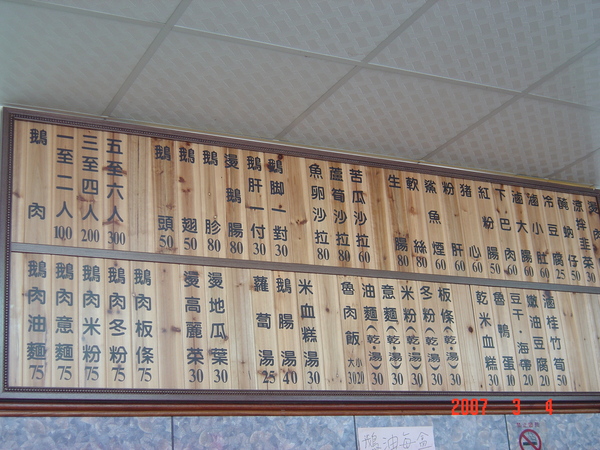 鵝肉
一至二人100
三至四人200
五至六人300
鵝頭50
鵝翅50
鵝胗80
燙鵝腸80
鵝肝一付30
鵝腳一對30
魚卵沙拉80
蘆筍沙拉80
苦瓜沙拉60
生腸80
軟絲80
鯊魚煙60
粉肝60
豬心60
紅粉腸50
下巴肉60
滷大腸60
滷小肚60
冷豆腐25
醃蚋仔50
涼拌韭菜30
鵝肉油麵75
鵝肉意麵75
鵝肉米粉75
鵝肉冬粉75
鵝肉板條75
燙高麗菜30
燙地瓜葉30
蘿蔔湯25
鵝腸湯40
米血糕湯30
魯肉飯大30小20
油麵(乾‧湯)30
意麵(乾‧湯)30
米粉(乾‧湯)30
冬粉(乾‧湯)30
板條(乾‧湯)30
乾米血糕30
魯鴨蛋10
豆干‧海帶20
嫩油豆腐20
滷桂竹筍50
2007 3 4
鵝油每盒